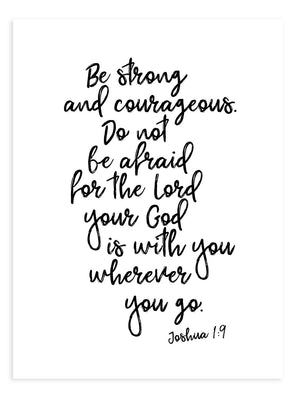 Be strong
and courageous.
Do not
be afraid
for the Lord
your God
is with you
wherever
you go.
Joshua 1:9